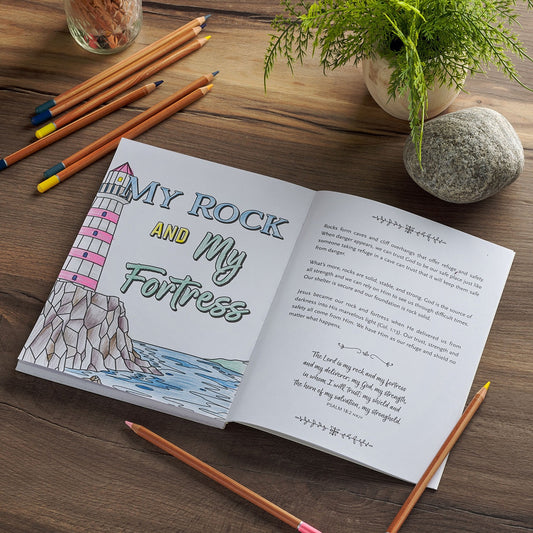 MY ROCK
AND My
Fortress
Rocks form caves and cliff overhangs that offer refuge and safety.
When danger appears, we can trust God to be our safe place just like
someone taking refuge in a cave can trust that it will keep them safe
from danger.
What's more, rocks are solid, stable, and strong. God is the source of
all strength and we can rely on Him to see us through difficult times.
Our shelter is secure and our foundation is rock solid.
Jesus became our rock and fastness when He delivered us from
darkness into His marvelous light (Col. 1:13). Our trust, strength and
safety all come from Him. We have Him as our refuge and shield no
matter what happens.
The Lord is my rock and my fortress
and my deliverer; my God, my strength,
in whom I will trust; my shield and
the horn of my salvation, my stronghold.
PSALM 18:2 NKJV